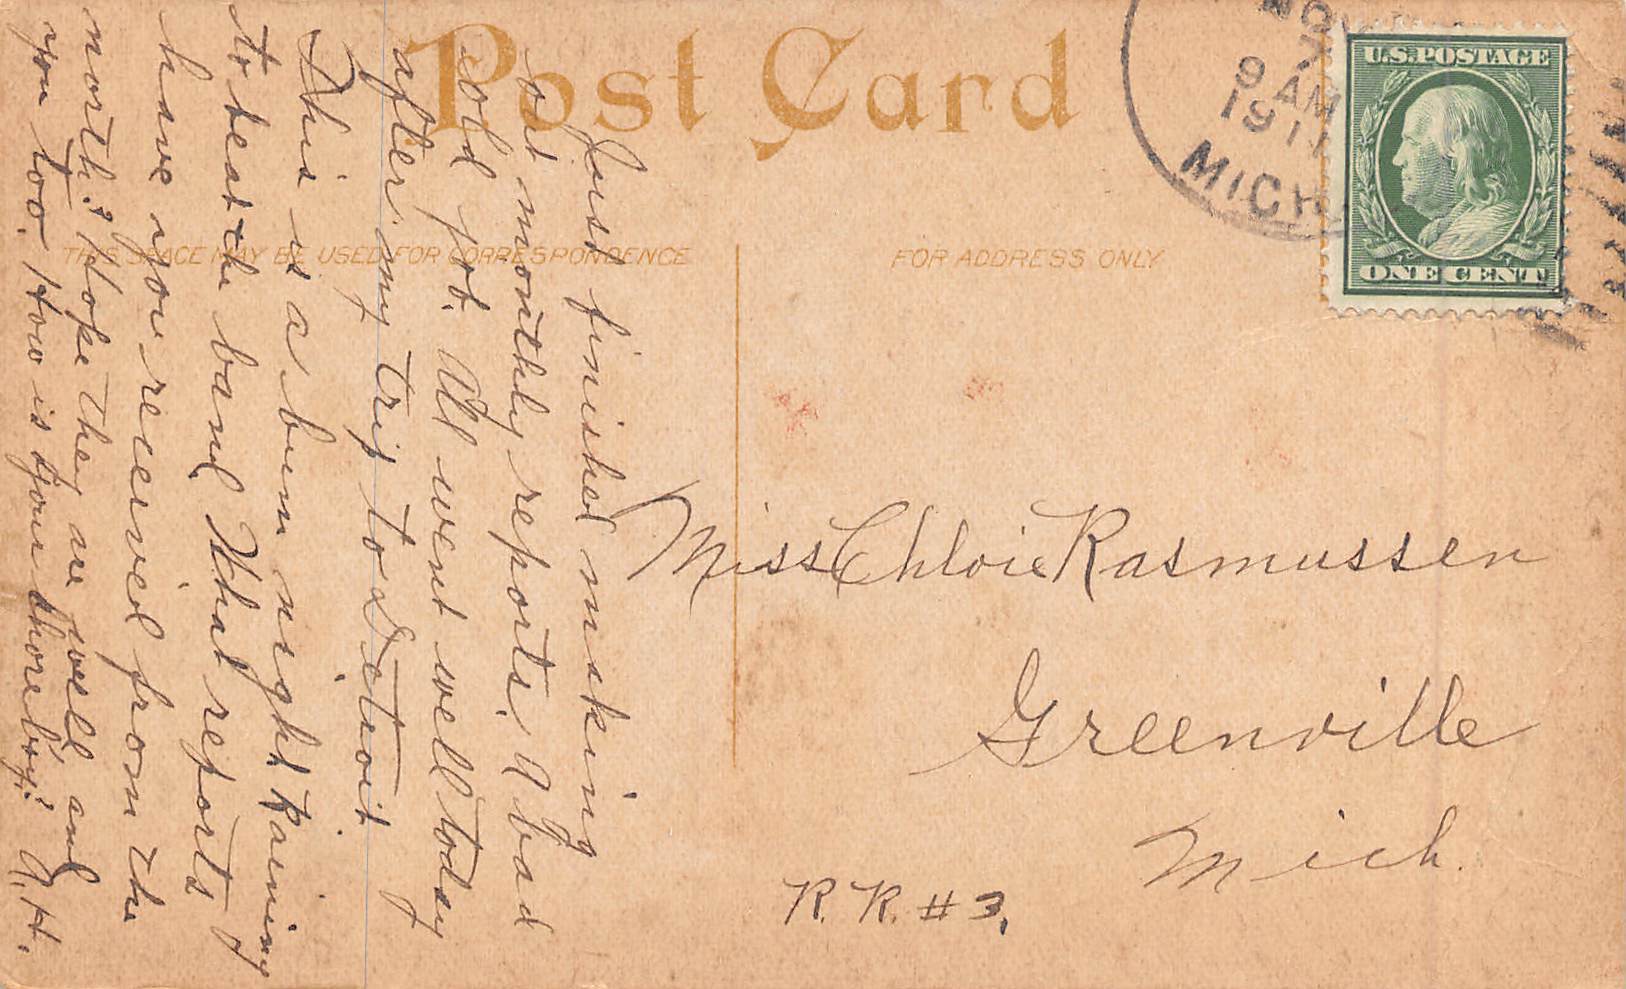 Post Card
THIS SPACE MAY BE USED FOR CORRESPONDENCE
FOR ADDRESS ONLY
NOV
7
9 AM
1911
MICH
U.S. POSTAGE
ONE CENT
Just finished making
out monthly reports. A bad
cold job. All went well today
after my trip to Detroit.
This is a bum night raining
to beat the band. What reports
have you received from the
north? Hope they are well and
you too. How is your shoreboy? A. H.
Miss Chloie Rasmussen
Greenville
Mich.
R. R. # 3.